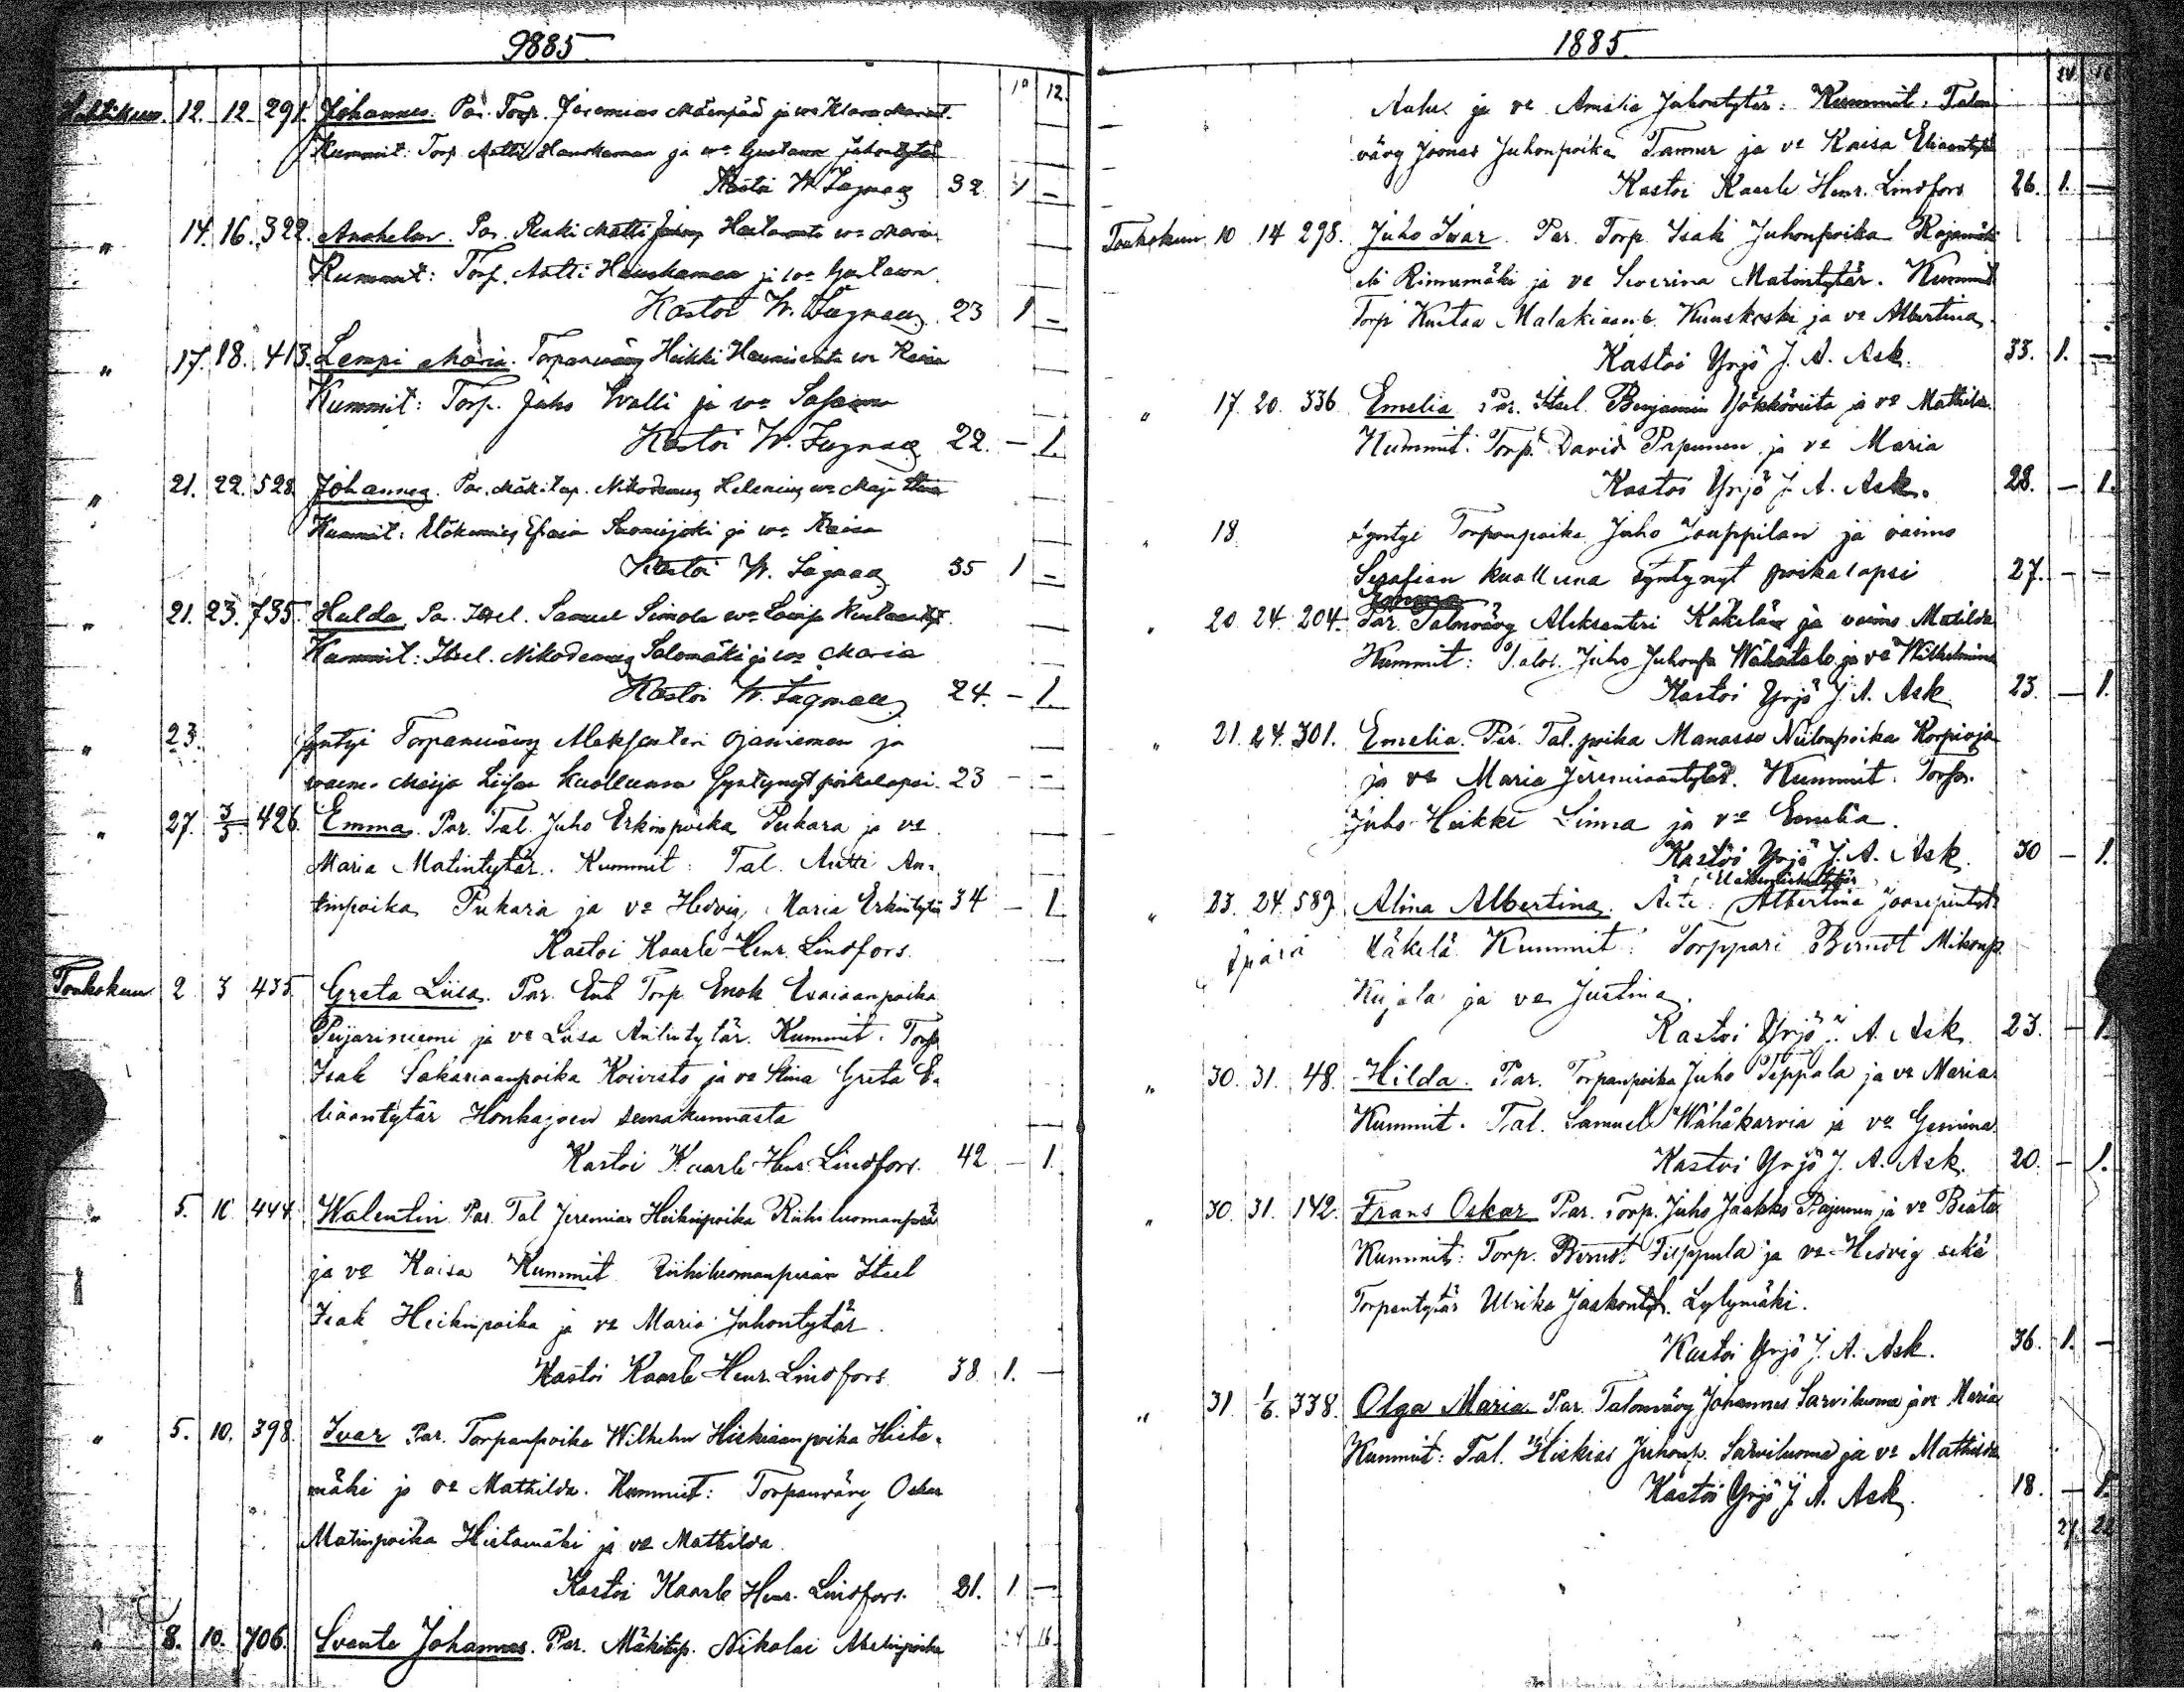 9885
10 12.
Huhtikuu. 12. 12. 291. Johannes. Par. Torp. Jeremias Mäenpää ja vo Klara
Kummit: Torp. Antti Hauskamaa ja vo Gustava Juhontytär
Kastoi W. Lagman 32. 1 –
" 14. 16. 322. Par. Renki Matti vo Maria
Kummit: Torp. Antti Hauskamaa ja vo Gustava
Kastoi W. Lagman 23 1 –
" 17. 18. 413. Lempi Maria. Torpanvävy Heikki vo Kaisa
Kummit: Torp. Juho Walli ja vo
Kastoi W. Lagman 22. – 1.
" 21. 22. 528 Johannes. Par. Mäkitup. Nikodemus Helenius vo Maja
Kummit: ja vo Kaisa
Kastoi W. Lagman 35 1 –
" 21. 23. 735. Hulda. Par. Itsel. Samuel Simola vo Loviisa
Kummit: Itsel. Nikodemus Salomäki ja vo Maria
Kastoi W. Lagman 24. – 1.
" 23. Syntyi Torpanvävy Aleksanteri Ojaniemen ja
vaimo Maija Liisan kuolluna syntynyt poikalapsi. 23 – –
" 27. 3/5 426. Emma. Par. Tal. Juho Erkinpoika Pukara ja vo
Maria Matintytär. Kummit: Tal. Antti An-
tinpoika Pukara ja vo Hedvig Maria Erkintytär 34 – 1
Kastoi Kaarle Henr. Lindfors.
Toukokuu 2 3 435. Greta Liisa. Par. Ent. Torp. Enok Esaiaanpoika
Peijariniemi ja vo Liisa Antintytär. Kummit: Torp.
Isak Sakariaanpoika Koivisto ja vo Stina Greta E-
liaantytär Honkajoen seurakunnasta
Kastoi Kaarle Henr. Lindfors. 42 – 1.
" 5. 10 444 Walentin. Par. Tal Jeremias Heikinpoika Riihiluomanperä
ja vo Kaisa Kummit Riihiluomanperän Itsel
Isak Heikinpoika ja vo Maria Juhontytär.
Kastoi Kaarle Henr. Lindfors 38 1. –
" 5. 10. 398. Ivar Par. Torpanpoika Wilhelm Hiskiaanpoika Hieta-
mäki ja vo Mathilda. Kummit: Torpanvävy Oskar
Matinpoika Hietamäki ja vo Mathilda.
Kastoi Kaarle Henr. Lindfors. 21. 1 –
" 8. 10. 706. Svante Johannes. Par. Mäkitup. Nikolai Abelinpoika
14 16
1885.
14 16
Aalu ja vo Amalia Juhontytär. Kummit: Talon
vävy Joonas Juhonpoika Tanner ja vo Kaisa Eliaantytär
Kastoi Kaarle Henr. Lindfors 26. 1. –
Toukokuu 10 14 298. Juho Ivar. Par. Torp. Isak Juhonpoika Rajamäki
eli Rinnemäki ja vo Severina Matintytär. Kummit
Torp Kustaa Malakiaanp. Kuuskoski ja vo Albertina.
Kastoi Yrjö J. A. Ask. 33. 1. –
" 17. 20. 336 Emelia Par. Itsel. Benjamin Yökköviita ja vo Mathilda.
Kummit: Torp. David Papunen ja vo Maria
Kastoi Yrjö J. A. Ask. 28. – 1.
" 18. Syntyi Torpanpoika Juho Jouppilan ja vaimo
Serafian kuolluna syntynyt poikalapsi 27. – –
" 20 24. 204. Par. Talonvävy Aleksanteri Käkelän ja vaimo Matilda
Kummit: Talol. Juho Juhonp. Wähätalo ja vo Wilhelmina
Kastoi Yrjö J. A. Ask 23. – 1.
" 21. 24. 301. Emelia. Par. Tal. poika Manasse Niilonpoika Korpioja
ja vo Maria Jeremiaantytär. Kummit: Torp.
Juho Heikki Linna ja vo Emelia.
Kastoi Yrjö J. A. Ask. 30 – 1.
" 23. 24. 589. Alina Albertina. Äiti: Albertina Joosepintytär
äpärä Käkelä Kummit: Torppari Berndt Mikonp.
Kujala ja vo Justina.
Kastoi Yrjö J. A. Ask. 23. – 1.
" 30. 31. 48. Hilda. Par. Torpanpoika Juho Peppala ja vo Maria
Kummit. Tal. Samuel Wähäkarvia ja vo Gemina.
Kastoi Yrjö J. A. Ask. 20. – 1.
" 30. 31. 142. Frans Oskar Par. Torp. Juho Jaakko Pajunen ja vo Beata
Kummit: Torp. Berndt Fieppula ja vo Hedvig sekä
Torpantytär Ulrika Jaakontyt. Lylymäki.
Kastoi Yrjö J. A. Ask. 36. 1. –
" 31. 1/6. 338. Olga Maria Par. Talonvävy Johannes Sarviluoma ja vo Maria
Kummit: Tal. Hiskias Juhonp. Sarviluoma ja vo Mathilda
Kastoi Yrjö J. A. Ask. 18. – 1.
27. 22